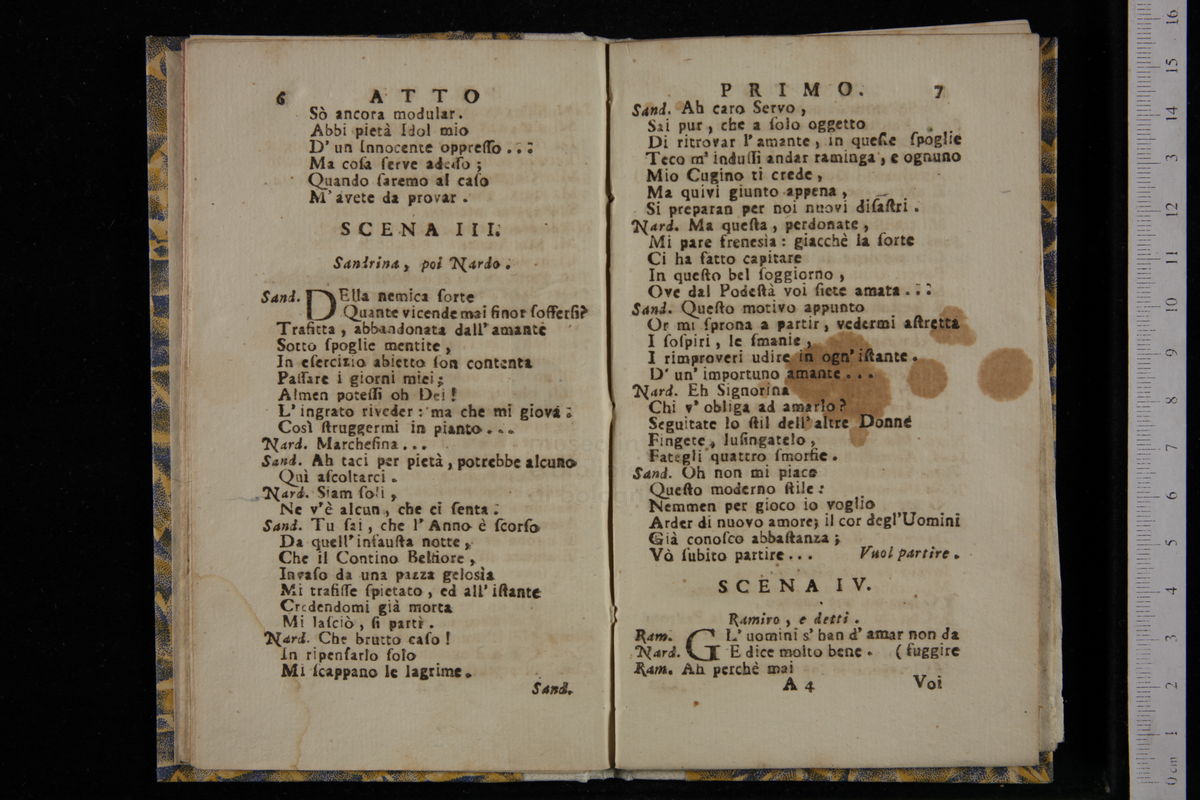 6 ATTO
Sò ancora modular.
Abbi pietà Idol mio
D' un Innocente oppreſſo...
Ma coſa ſerve adeſſo;
Quando ſaremo al caſo
M'avete da provar.
SCENA III.
Sandrina, poi Nardo.
Sand. DElla nemica ſorte
Quante vicende mai finor ſofferſi?
Trafitta, abbandonata dall' amante
Sotto ſpoglie mentite,
In eſercizio abietto ſon contenta
Paſſare i giorni miei;
Almen poteſſi oh Dei!
L' ingrato riveder: ma che mi giova.
Così ſtruggermi in pianto...
Nard. Marcheſina...
Sand. Ah taci per pietà, potrebbe alcuno
Quì aſcoltarci.
Nard. Siam ſoli,
Ne v'è alcun, che ci ſenta.
Sand. Tu ſai, che l' Anno è ſcorſo
Da quell' infauſta notte,
Che il Contino Belfiore,
Invaſo da una pazza geloſìa
Mi trafiſſe ſpietato, ed all' iſtante
Credendomi già morta
Mi laſciò, ſi partì.
Nard. Che brutto caſo!
In ripenſarlo ſolo
Mi ſcappano le lagrime.
Sand.
PRIMO. 7
Sand. Ah caro Servo,
Sai pur, che a ſolo oggetto
Di ritrovar l' amante, in queſte ſpoglie
Teco m' induſſi andar raminga, e ognuno
Mio Cugino ti crede,
Ma quivi giunto appena,
Si preparan per noi nuovi diſaſtri.
Nard. Ma queſta, perdonate,
Mi pare freneſia: giacchè la ſorte
Ci ha fatto capitare
In queſto bel ſoggiorno,
Ove dal Podeſtà voi ſiete amata...
Sand. Queſto motivo appunto
Or mi ſprona a partir, vedermi aſtretta
I ſoſpiri, le ſmanie,
I rimproveri udire in ogn' iſtante.
D' un' importuno amante...
Nard. Eh Signorina
Chi v' obliga ad amarlo?
Seguitate lo ſtil dell' altre Donne
Fingete, luſingatelo,
Fategli quattro ſmorfie.
Sand. Oh non mi piace
Queſto moderno ſtile:
Nemmen per gioco io voglio
Arder di nuovo amore; il cor degl'Uomini
Già conoſco abbaſtanza;
Vò ſubito partire... Vuol partire.
SCENA IV.
Ramiro, e detti.
Ram. GL' uomini s' han d' amar non da
Nard. E dice molto bene. (fuggire
Ram. Ah perchè mai
A 4 Voi
16
15
14
13
12
11
10
9
8
7
6
5
4
3
2
1
0 cm